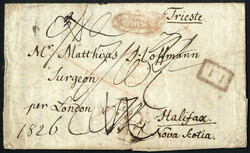 Trieste
Mr. Matthias Hoffmann
Surgeon
per London
Halifax
1826
Nova Scotia